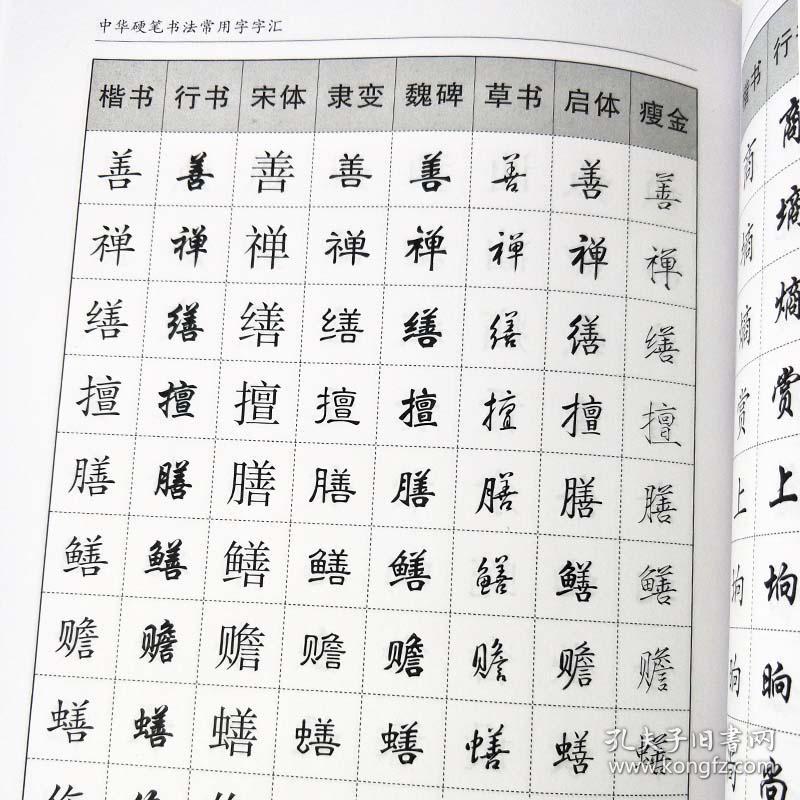 中华硬笔书法常用字字汇
楷书 行书 宋体 隶变 魏碑 草书 启体 瘦金
善 善 善 善 善 善 善 善
禅 禅 禅 禅 禅 禅 禅 禅
缮 缮 缮 缮 缮 缮 缮 缮
擅 擅 擅 擅 擅 擅 擅 擅
膳 膳 膳 膳 膳 膳 膳 膳
鳝 鳝 鳝 鳝 鳝 鳝 鳝 鳝
赡 赡 赡 赡 赡 赡 赡 赡
蟮 蟮 蟮 蟮 蟮 蟮 蟮 蟮
楷书 行
商 商
墒 墒
熵 熵
赏 赏
上 上
垧 垧
晌 晌
尚 尚
孔夫子旧书网
www.kongfz.com